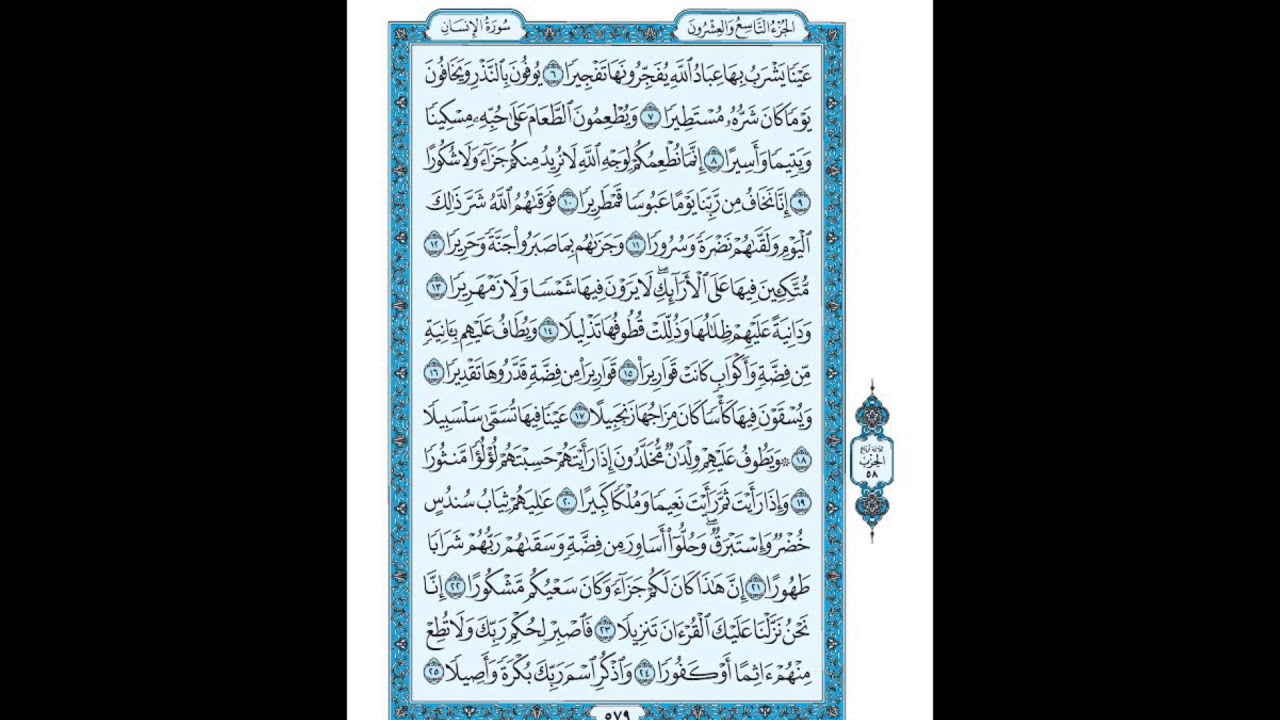 الجُزْءُ التَّاسِعُ وَالعِشْرُونَ
سُورَةُ الإِنسَانِ
عَيْنٗا يَشْرَبُ بِهَا عِبَادُ ٱللَّهِ يُفَجِّرُونَهَا تَفْجِيرٗا ٦ يُوفُونَ بِٱلنَّذْرِ وَيَخَافُونَ
يَوْمٗا كَانَ شَرُّهُۥ مُسْتَطِيرٗا ٧ وَيُطْعِمُونَ ٱلطَّعَامَ عَلَىٰ حُبِّهِۦ مِسْكِينٗا
وَيَتِيمٗا وَأَسِيرًا ٨ إِنَّمَا نُطْعِمُكُمْ لِوَجْهِ ٱللَّهِ لَا نُرِيدُ مِنكُمْ جَزَآءٗ وَلَا شُكُورًا
٩ إِنَّا نَخَافُ مِن رَّبِّنَا يَوْمًا عَبُوسٗا قَمْطَرِيرٗا ١٠ فَوَقَىٰهُمُ ٱللَّهُ شَرَّ ذَٰلِكَ
ٱلْيَوْمِ وَلَقَّىٰهُمْ نَضْرَةٗ وَسُرُورٗا ١١ وَجَزَىٰهُم بِمَا صَبَرُواْ جَنَّةٗ وَحَرِيرٗا ١٢
مُّتَّكِـِٔينَ فِيهَا عَلَى ٱلْأَرَآئِكِۖ لَا يَرَوْنَ فِيهَا شَمْسٗا وَلَا زَمْهَرِيرٗا ١٣
وَدَانِيَةً عَلَيْهِمْ ظِلَٰلُهَا وَذُلِّلَتْ قُطُوفُهَا تَذْلِيلٗا ١٤ وَيُطَافُ عَلَيْهِم بِـَٔانِيَةٖ
مِّن فِضَّةٖ وَأَكْوَابٖ كَانَتْ قَوَارِيرَا۠ ١٥ قَوَارِيرَاْ مِن فِضَّةٖ قَدَّرُوهَا تَقْدِيرٗا ١٦
وَيُسْقَوْنَ فِيهَا كَأْسٗا كَانَ مِزَاجُهَا زَنجَبِيلًا ١٧ عَيْنٗا فِيهَا تُسَمَّىٰ سَلْسَبِيلٗا
١٨ ۞ وَيَطُوفُ عَلَيْهِمْ وِلْدَٰنٞ مُّخَلَّدُونَ إِذَا رَأَيْتَهُمْ حَسِبْتَهُمْ لُؤْلُؤٗا مَّنثُورٗا
١٩ وَإِذَا رَأَيْتَ ثَمَّ رَأَيْتَ نَعِيمٗا وَمُلْكٗا كَبِيرًا ٢٠ عَٰلِيَهُمْ ثِيَابُ سُندُسٍ
خُضْرٞ وَإِسْتَبْرَقٞۖ وَحُلُّوٓاْ أَسَاوِرَ مِن فِضَّةٖ وَسَقَىٰهُمْ رَبُّهُمْ شَرَابٗا
طَهُورًا ٢١ إِنَّ هَٰذَا كَانَ لَكُمْ جَزَآءٗ وَكَانَ سَعْيُكُم مَّشْكُورًا ٢٢ إِنَّا
نَحْنُ نَزَّلْنَا عَلَيْكَ ٱلْقُرْءَانَ تَنزِيلٗا ٢٣ فَٱصْبِرْ لِحُكْمِ رَبِّكَ وَلَا تُطِعْ
مِنْهُمْ ءَاثِمًا أَوْ كَفُورٗا ٢٤ وَٱذْكُرِ ٱسْمَ رَبِّكَ بُكْرَةٗ وَأَصِيلٗا ٢٥
ثلاثة أرباع
الحزب
٥٨
٥٧٩